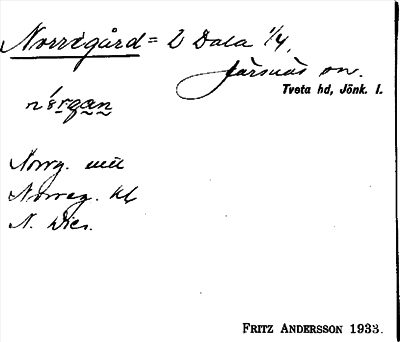 Norrigård = 2 Dala 1/4,
Järsnäs sn.
Tveta hd, Jönk. l.
Norrg. mtl
Norreg. Kb
N. Dics.
FRITZ ANDERSSON 1933.